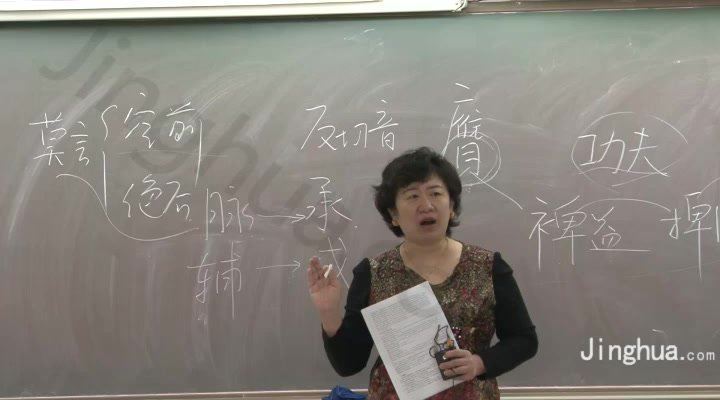 莫言 空前
绝后
反切音
脉→承
辅→成
赝
功夫
裨益
Jinghua.com